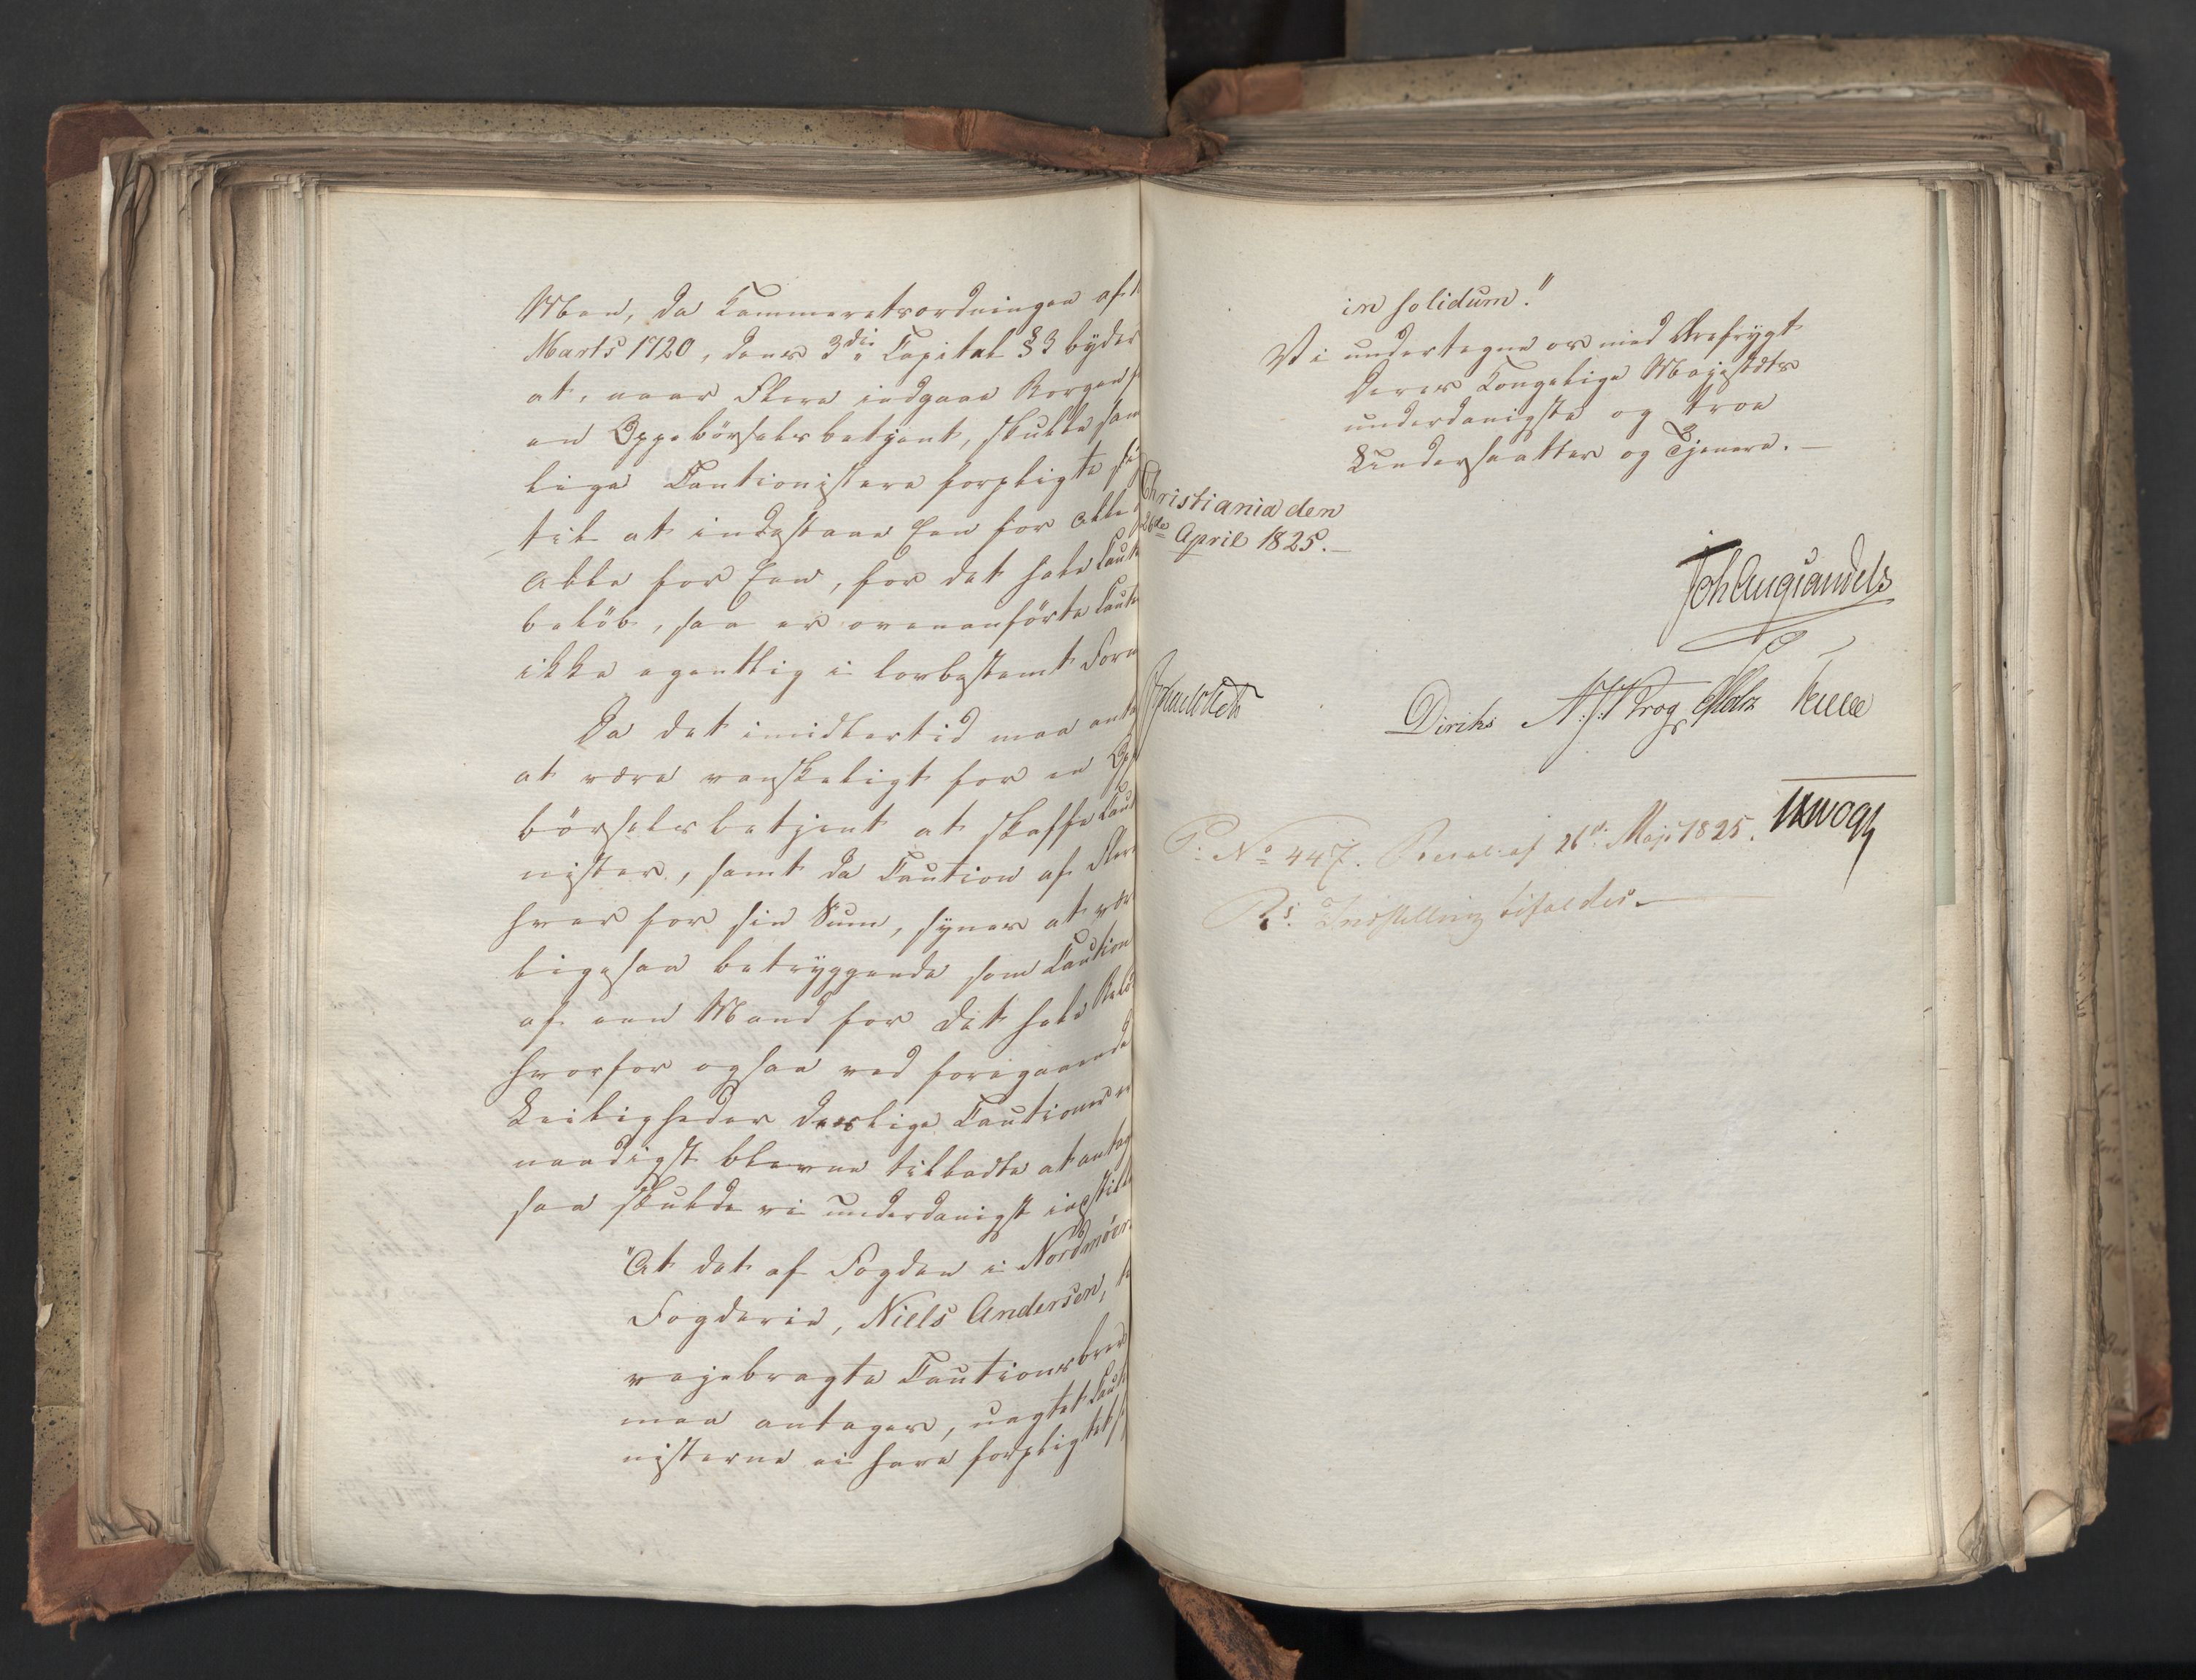 Men, da Kammerretsordningen af
Marts 1720, dens 3die Capitel § 3 byder
at, naar Flere indgaae Borgen f
en Oppebörselsbetjent, skulle sam
lige Cautionister forpligte sig
til at indestaae Een for Alle
Alle for Een, for det hele Caut
belöb, saa er ovenanförte Caut
ikke egentlig i lovbestemt Form
Da det imidlertid maa anta
at være vanskeligt for en Opp
börselsbetjent at skaffe Caut
nister, samt da Caution af Flere
hver for sin Sum, synes at være
ligesaa betryggende som Caution
af een Mand for det hele Belöb
hvorfor ogsaa ved foregaaende
Leiligheder deslige Cautioner
naadigst blevne tilladte at antag
saa skulde vi underdanigst indstille
"At det af Fogden i Nordmöers
Fogderie, Niels Andersen, t
vejebragte Cautionsbrev
maa antages, uagtet Cauti
nisterne ei have forpligtet s
in solidum."
Vi undertegne os med Ærefrygt
Deres Kongelige Majestæts
underdanigste og troe
Undersaatter og Tjenere. —
Christiania den
26de April 1825. —
Joh Aug Sandels
Diriks N. J. Krog Motz
P: No 447. Resol: af 26de Maji 1825.
Rs. Indstilling bifaldes. —